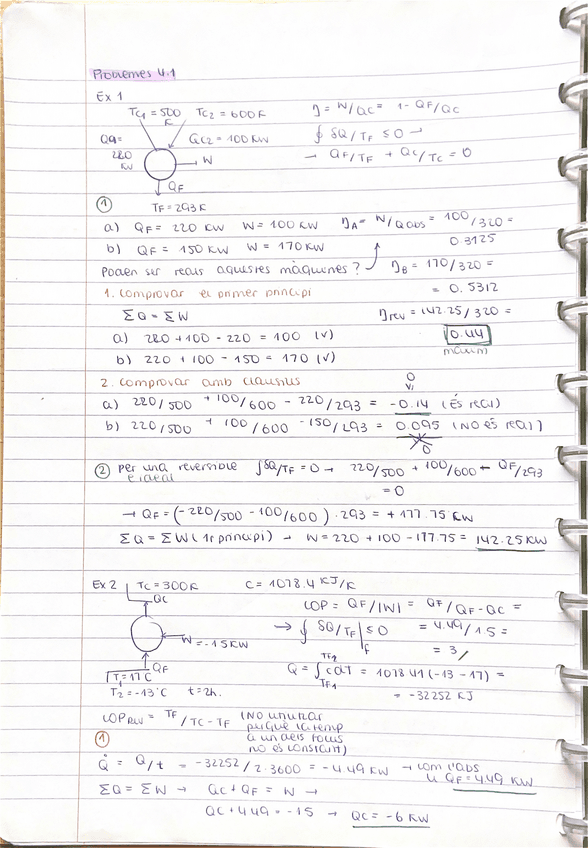 Problemes 4.1
Ex 1
TC1 = 500 K TC2 = 600 K η = W/QC = 1 - QF/QC
QC1= 220 KW QC2 = 100 KW ∮ δQ/TF ≤ 0 →
W → QF/TF + QC/TC = 0
QF
TF = 293 K
① a) QF = 220 KW W = 100 KW ηA = W/QABS = 100/320 = 0.3125
b) QF = 150 KW W = 170 KW
Poden ser reals aquestes màquines? ηB = 170/320 = 0.5312
1. Comprovar el primer principi
ΣQ = ΣW ηrev = 142.25/320 = 0.44 màxim
a) 220 + 100 - 220 = 100 (v)
b) 220 + 100 - 150 = 170 (v)
2. Comprovar amb Clausius 0
a) 220/500 + 100/600 - 220/293 = -0.14 (És real)
b) 220/500 + 100/600 - 150/293 = 0.095 (NO és real)
0
② Per una reversible e ideal ∫δQ/TF = 0 → 220/500 + 100/600 - QF/293 = 0
→ QF = (-220/500 - 100/600) · 293 = + 177.75 KW
ΣQ = ΣW (1r principi) → W = 220 + 100 - 177.75 = 142.25 KW
Ex 2 TC = 300 K C = 1078.4 KJ/K
QC COP = QF/|W| = QF/QF - QC =
W = -1.5 KW → ∮ δQ/TF|f ≤ 0 = 4.49/1.5 = 3
QF
T = 17 C Q = ∫TF1 TF2 C dT = 1078.41 (-13 - 17) =
T2 = -13°C t = 2h. = -32252 KJ
COPREV = TF/TC - TF (NO utilitzar perque la temp a un dels focus no és constant)
① Q̇ = Q/t = -32252/2·3600 = -4.49 KW → com l'abs u QF = 4.49 KW
ΣQ = ΣW → QC + QF = W →
QC + 4.49 = -1.5 → QC = -6 KW